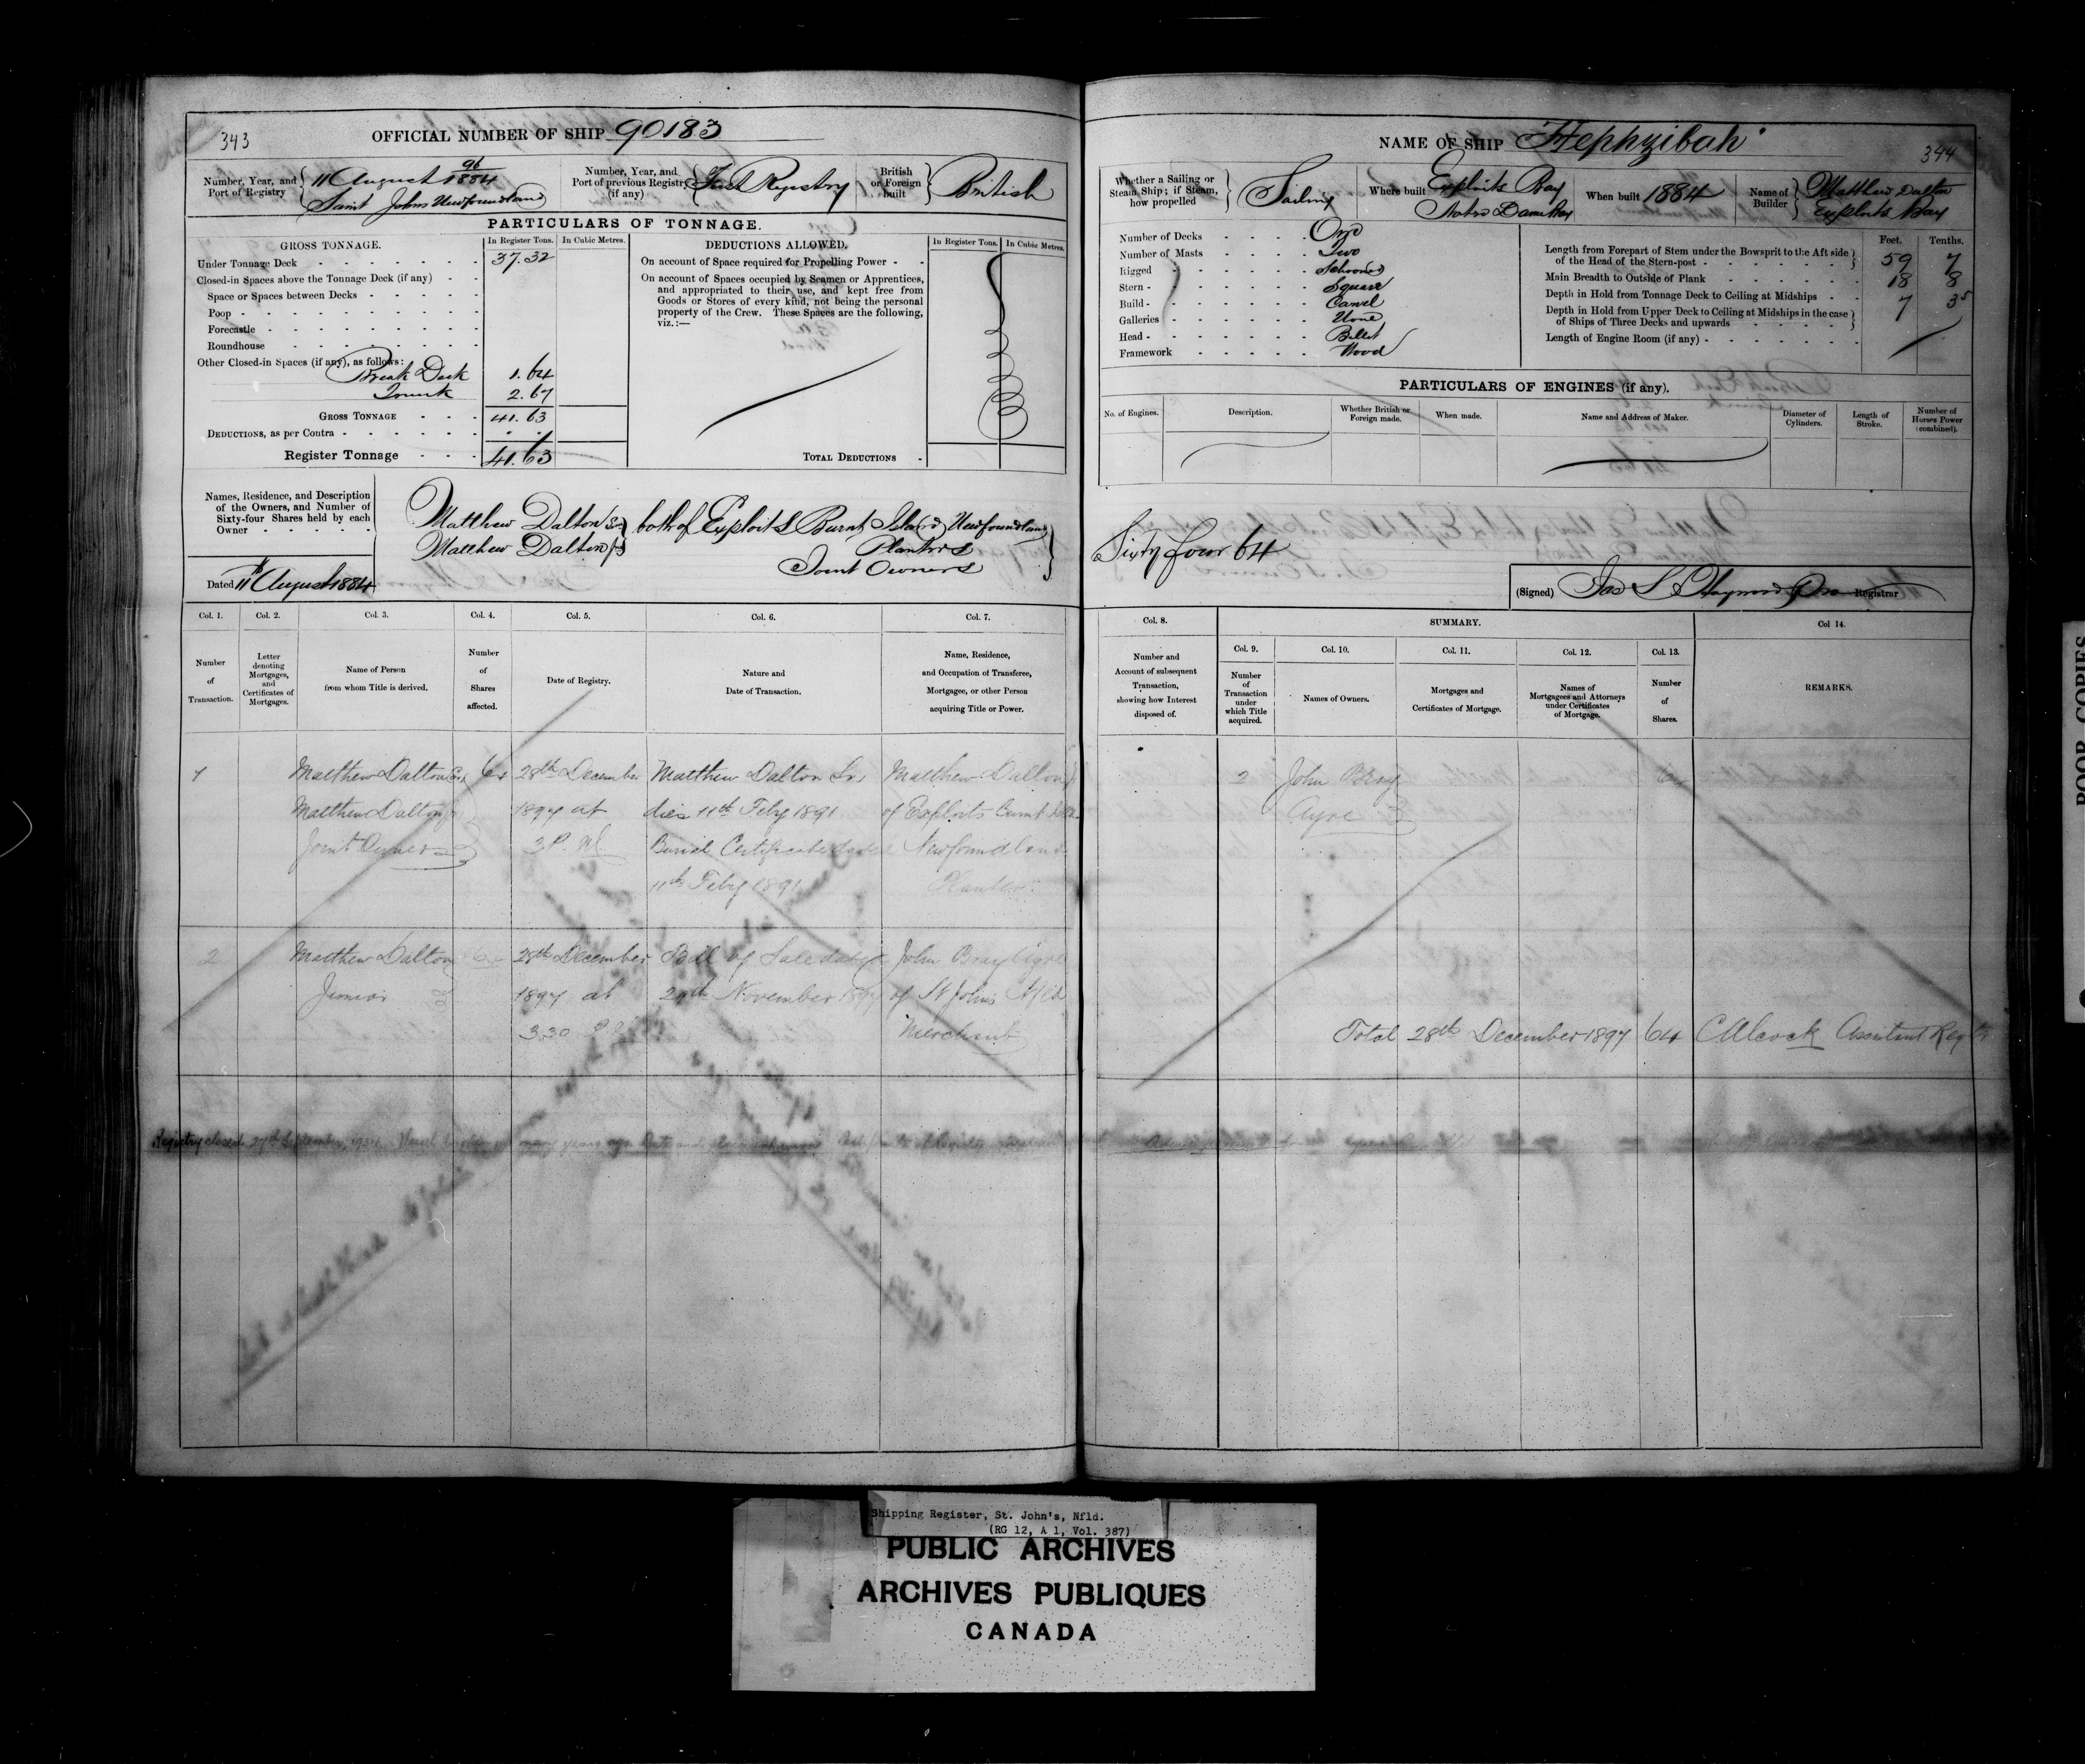 343
OFFICIAL NUMBER OF SHIP 90183
Number, Year, and Port of Registry
11 August 96/1884
Saint Johns Newfoundland
Number, Year, and Port of previous Registry (if any)
First Registry
British or Foreign built
British
PARTICULARS OF TONNAGE.
GROSS TONNAGE.
In Register Tons.
In Cubic Metres.
Under Tonnage Deck 37.32
Closed-in Spaces above the Tonnage Deck (if any)
Space or Spaces between Decks
Poop
Forecastle
Roundhouse
Other Closed-in Spaces (if any), as follows:
Break Deck 1.64
Trunk 2.67
GROSS TONNAGE 41.63
DEDUCTIONS, as per Contra
Register Tonnage 41.63
DEDUCTIONS ALLOWED.
In Register Tons.
In Cubic Metres.
On account of Space required for Propelling Power
On account of Spaces occupied by Seamen or Apprentices,
and appropriated to their use, and kept free from
Goods or Stores of every kind, not being the personal
property of the Crew. These Spaces are the following,
viz.:—
TOTAL DEDUCTIONS
Names, Residence, and Description
of the Owners, and Number of
Sixty-four Shares held by each
Owner
Matthew Dalton Sr
Matthew Dalton Jr
both of Exploits Burnt Island Newfoundland
Planters
Joint Owners
Dated 11th August 1884
Col. 1.
Number of Transaction.
Col. 2.
Letter denoting Mortgages, and Certificates of Mortgages.
Col. 3.
Name of Person from whom Title is derived.
Col. 4.
Number of Shares affected.
Col. 5.
Date of Registry.
Col. 6.
Nature and Date of Transaction.
Col. 7.
Name, Residence, and Occupation of Transferee, Mortgagee, or other Person acquiring Title or Power.
1
Matthew Dalton Sr
Matthew Dalton Jr
Joint Owners
64
28th December
1897 at
3 P.M.
Matthew Dalton Sr
dies 11th Feby 1891
Burial Certificate dated
11th Feby 1891
Matthew Dalton Jr
of Exploits Burnt Island
Newfoundland
Planter
2
Matthew Dalton
Junior
64
28th December
1897 at
3.30 P.M.
Bill of Sale dated
November 1897
John Bray Ayre
of St Johns Nfld
Merchant
Registry closed 27th September, Vessel many years ago. Date and
NAME OF SHIP "Hephzibah"
344
Whether a Sailing or Steam Ship; if Steam, how propelled
Sailing
Where built
Exploits Bay
Notre Dame Bay
When built 1884
Name of Builder
Matthew Dalton
Exploits Bay
Number of Decks One
Number of Masts Two
Rigged Schooner
Stern Square
Build Carvel
Galleries None
Head Billet
Framework Wood
Feet. Tenths.
Length from Forepart of Stem under the Bowsprit to the Aft side of the Head of the Stern-post 59 7
Main Breadth to Outside of Plank 18 8
Depth in Hold from Tonnage Deck to Ceiling at Midships 7 35
Depth in Hold from Upper Deck to Ceiling at Midships in the case of Ships of Three Decks and upwards
Length of Engine Room (if any)
PARTICULARS OF ENGINES (if any).
No. of Engines.
Description.
Whether British or Foreign made.
When made.
Name and Address of Maker.
Diameter of Cylinders.
Length of Stroke.
Number of Horses Power (combined).
Sixty four 64
(Signed)
Registrar
Col. 8.
Number and Account of subsequent Transaction, showing how Interest disposed of.
SUMMARY.
Col. 9.
Number of Transaction under which Title acquired.
Col. 10.
Names of Owners.
Col. 11.
Mortgages and Certificates of Mortgage.
Col. 12.
Names of Mortgagees and Attorneys under Certificates of Mortgage.
Col. 13.
Number of Shares.
Col 14.
REMARKS.
2
John Bray
Ayre
64
Total 28th December 1897 64 Assistant Regr
POOR COPIES
Shipping Register, St. John's, Nfld.
(RG 12, A 1, Vol. 387)
PUBLIC ARCHIVES
ARCHIVES PUBLIQUES
CANADA